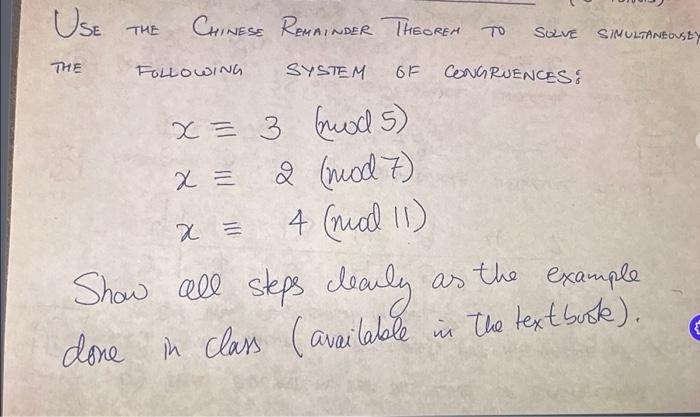 USE THE CHINESE REMAINDER THEOREM TO SOLVE SIMULTANEOUSLY
THE FOLLOWING SYSTEM OF CONGRUENCES:
x ≡ 3 (mod 5)
x ≡ 2 (mod 7)
x ≡ 4 (mod 11)
Show all steps clearly as the example
done in class (available in the textbook).